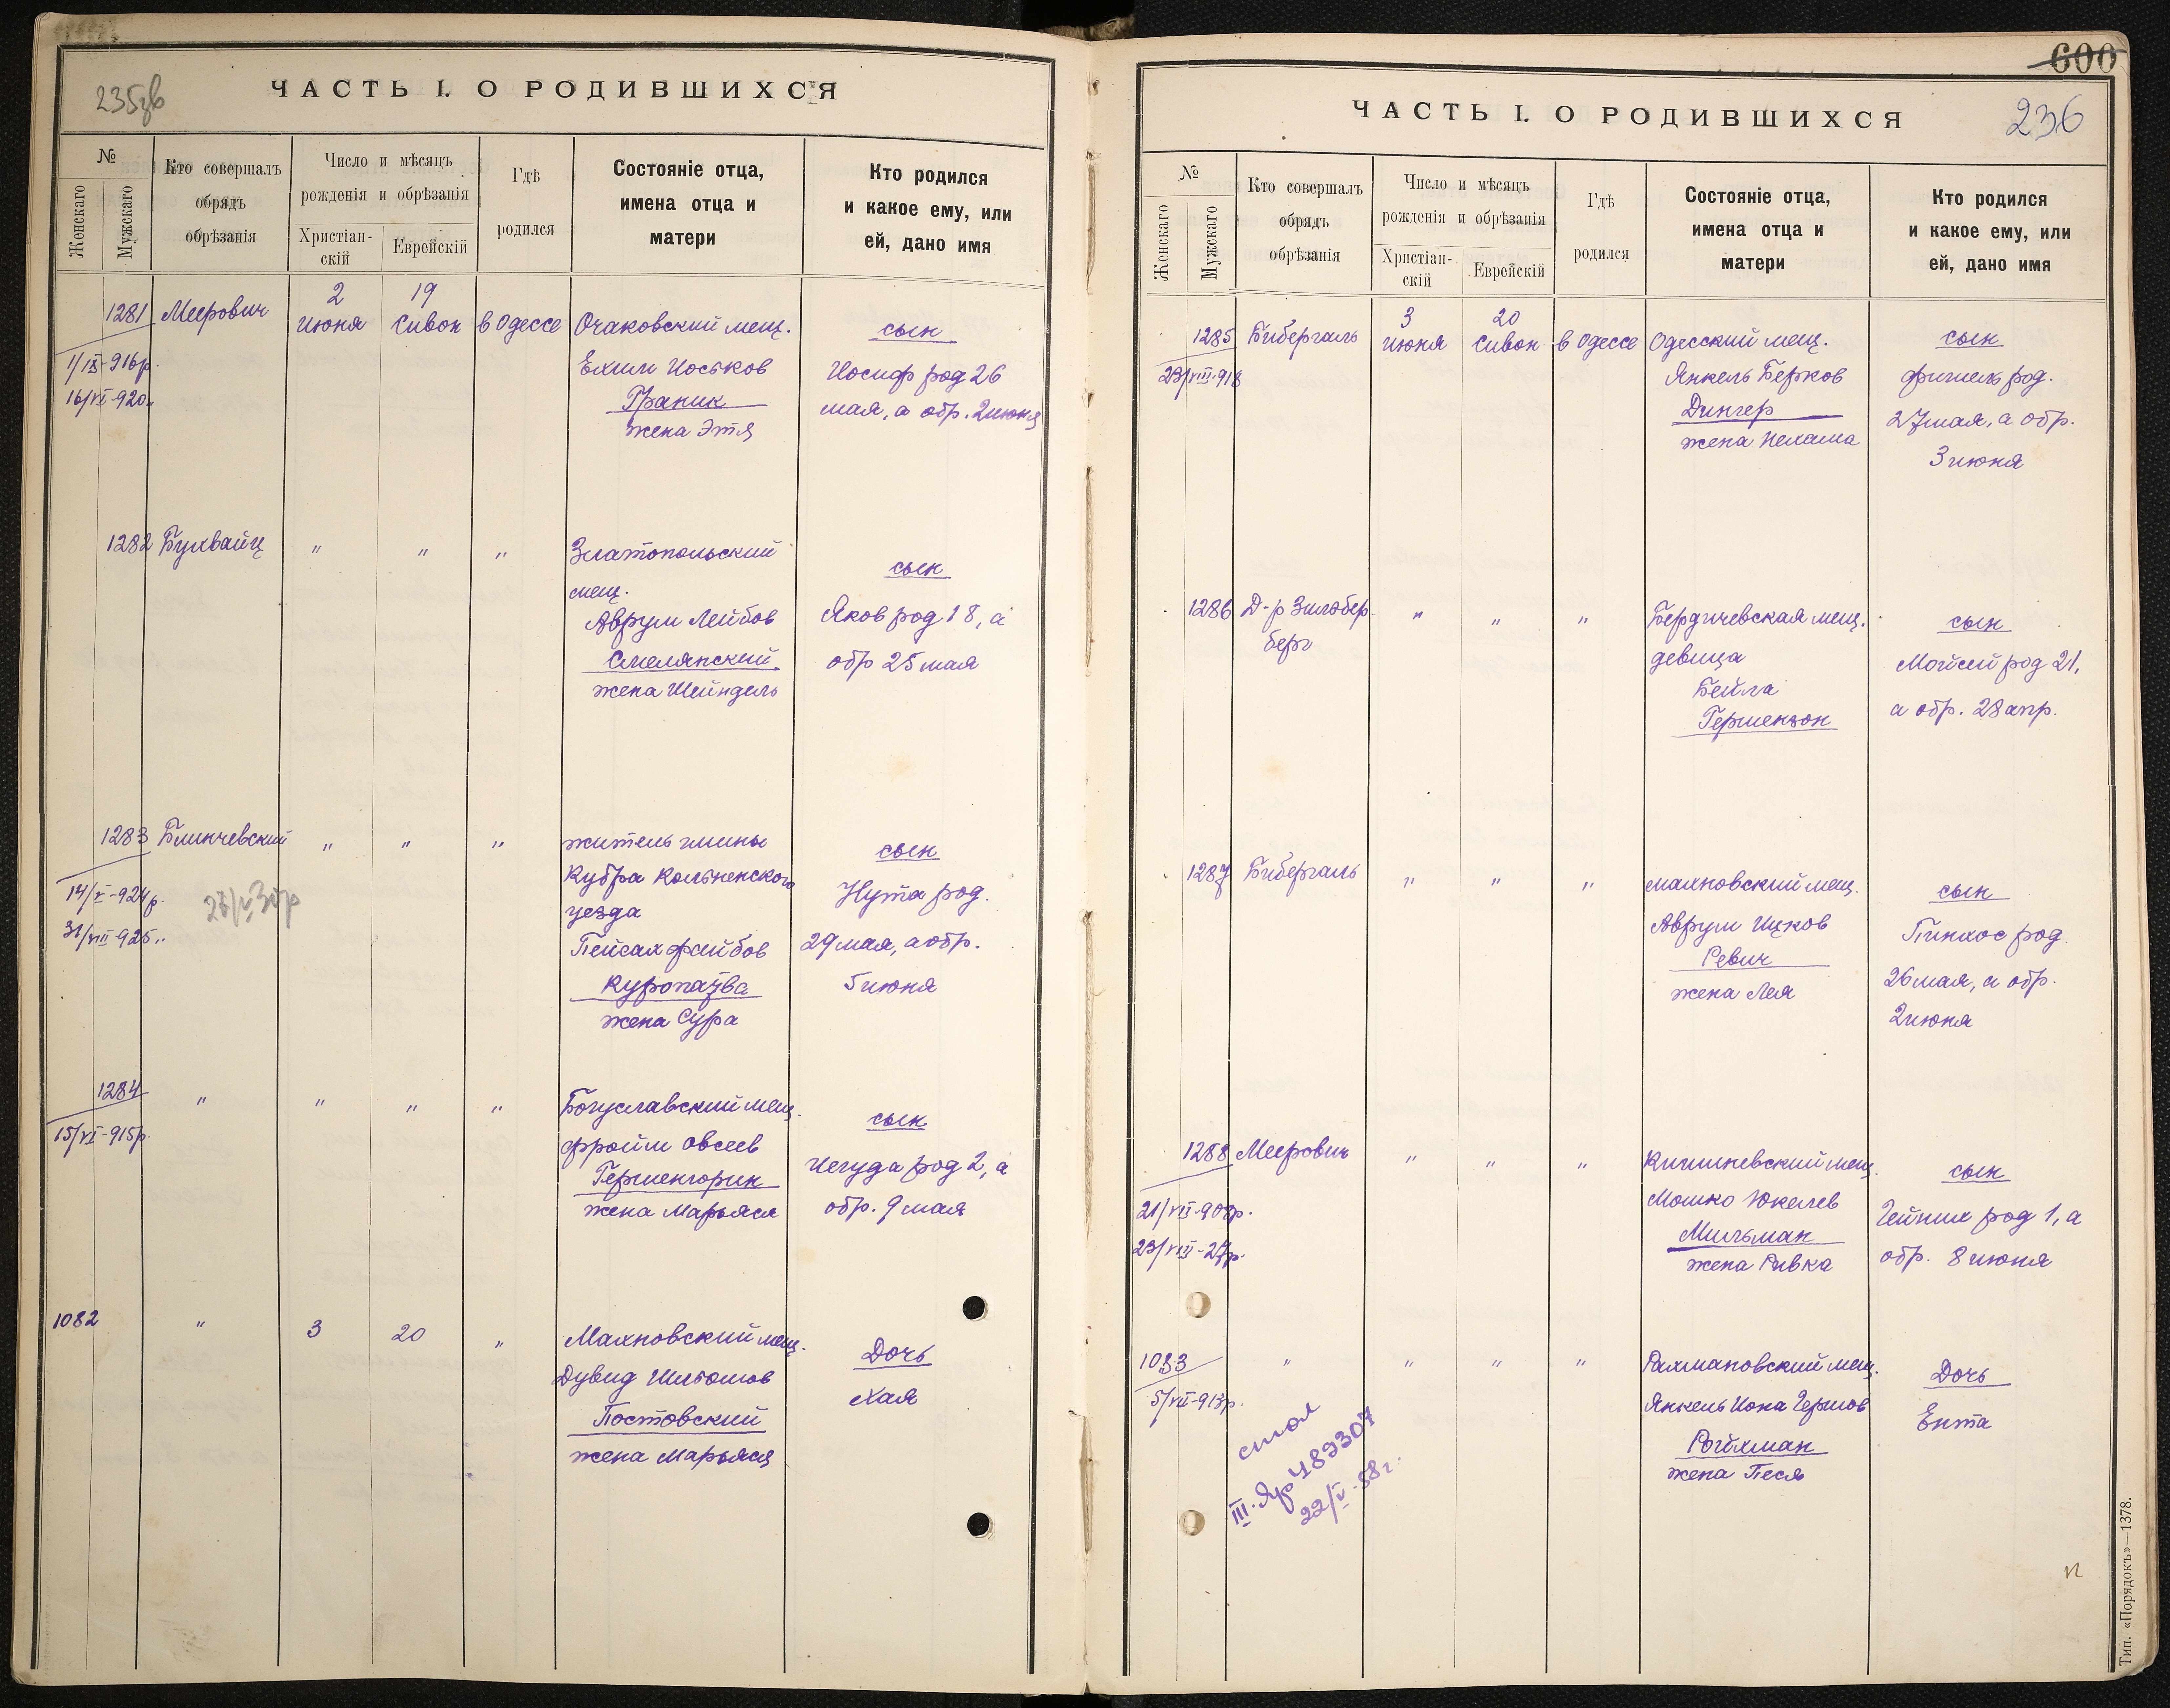 235зв
ЧАСТЬ I. О РОДИВШИХСЯ
№
Женскаго
Мужскаго
Кто совершалъ
обрядъ
обрѣзанія
Число и мѣсяцъ
рожденія и обрѣзанія
Христіан-
скій
Еврейскій
Гдѣ
родился
Состояніе отца,
имена отца и
матери
Кто родился
и какое ему, или
ей, дано имя
1281 Меерович 2 июня 19 Сивон в Одессе
1/IX-916р.
16/VI-920„
Очаковский мещ.
Ехил Иоськов
Граник
жена Этя
сын
Иосиф род 26
мая, а обр. 2 июня
1282 Бухвайц " " "
Златопольский
мещ.
Аврум Лейбов
Смелянский
жена Шейндель
сын
Яков род 18, а
обр 25 мая
1283 Блинчевский " " "
14/V-924р.
31/VIII-925„
житель гмины
Кубра Кольненского
уезда
Пейсах Файбов
Куропатва
жена Сура
сын
Нута род.
29 мая, а обр.
5 июня
1284 " " " "
15/VI-915р.
Богуславский мещ.
Фроим Овсеев
Гершенгорин
жена Марьяся
сын
Иегуда род 2, а
обр. 9 мая
1082 " 3 20 "
Махновский мещ.
Дувид Шлёомов
Постовский
жена Марьяся
Дочь
Хая
600
236
ЧАСТЬ I. О РОДИВШИХСЯ
№
Женскаго
Мужскаго
Кто совершалъ
обрядъ
обрѣзанія
Число и мѣсяцъ
рожденія и обрѣзанія
Христіан-
скій
Еврейскій
Гдѣ
родился
Состояніе отца,
имена отца и
матери
Кто родился
и какое ему, или
ей, дано имя
1285 Бибергаль 3 июня 20 Сивон в Одессе
23/VIII-918
Одесский мещ.
Янкель Берков
Дингер
жена Нехама
сын
Фишель род.
27 мая, а обр.
3 июня
1286 Д-р Зильбер-
берг " " "
Бердичевская мещ.
девица
Бейла
Гершензон
сын
Мойсей род 21,
а обр. 28 апр.
1287 Бибергаль " " "
Махновский мещ.
Аврум Ицков
Ревич
жена Лея
сын
Пинхос род.
26 мая, а обр.
2 июня
1288 Меерович " " "
23/VIII-27р.
Кишиневский мещ.
Мошко Юкелев
Мильман
жена Ривка
сын
Гейних род 1, а
обр. 8 июня
1083 " " " "
5/VII-913р.
Рахмановский мещ.
Янкель Иона Гершов
Ройхман
жена Песя
Дочь
Ента
22/V-58г.
Тип. «Порядокъ»—1378.